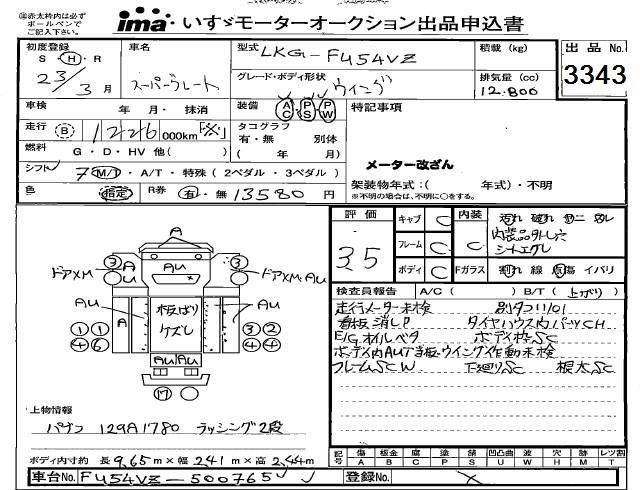 ㊟赤太枠内は必ず
ボールペンで
ご記入下さい。
ima いすゞモーターオークション出品申込書
初度登録 S・H・R 23年 3月
車名 スーパーグレート
型式 LKG-FU54VZ
積載 (kg)
出品 No. 3343
グレード・ボディ形状 ウイング
排気量 (cc) 12.800
車検 年 月・抹消
装備 AC PS PW
特記事項
走行 B 1226 000km「※」
タコグラフ 有・無 別体 ( 年 月)
燃料 G・D・HV 他( )
メーター改ざん
シフト 7 M/T・A/T・特殊 (2ペダル・3ペダル)
架装物年式:( 年式)・不明
※不明の場合は、不明に○をする。
色 指定 R券 有・無 13580 円
評価 3.5
キャブ C 内装 C 汚れ 破れ
フレーム C 内装品外し穴
シートエグレ
ボディ C Fガラス 割れ 線 点傷 イバリ
検査員報告 A/C ( ) B/T ( 上がり )
走行メーター未検 別タコ1101
看板消しP タイヤハウス内パーツCH
E/Gオイルベタ ボディ枠SC
ボディ内AU T当板・ウイング作動未検
フレームSCW 下廻りSC 根太SC
A
3 A AU 3
ドアXM ドアXM・AU
AU A 板ばり ケズレ AU
1 1 3 2
4 6 4 4
AU AU
17
上物情報
パブコ 129A1780 ラッシング2段
ボディ内寸約 長9.65m×幅2.41m×高2.44m
記号 傷 A 板金 B 腐 C 塗 P 錆 S 凹凸曲 U 波 W 穴 H 跡 M レツ割 T
車台No. FU54VZ-500765
登録No.